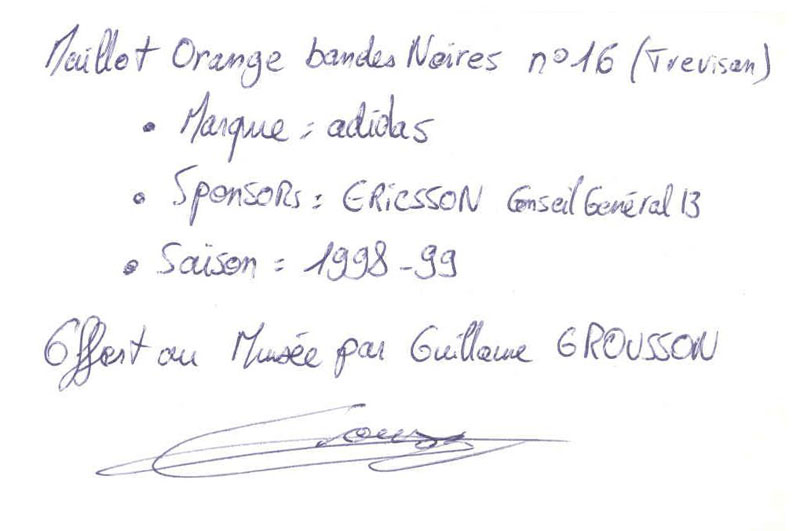 Maillot Orange bandes Noires n°16 (Trevisan)
• Marque : adidas
• Sponsors : ERICSSON Conseil Général 13
• Saison : 1998-99
Offert au Musée par Guillaume GROUSSON